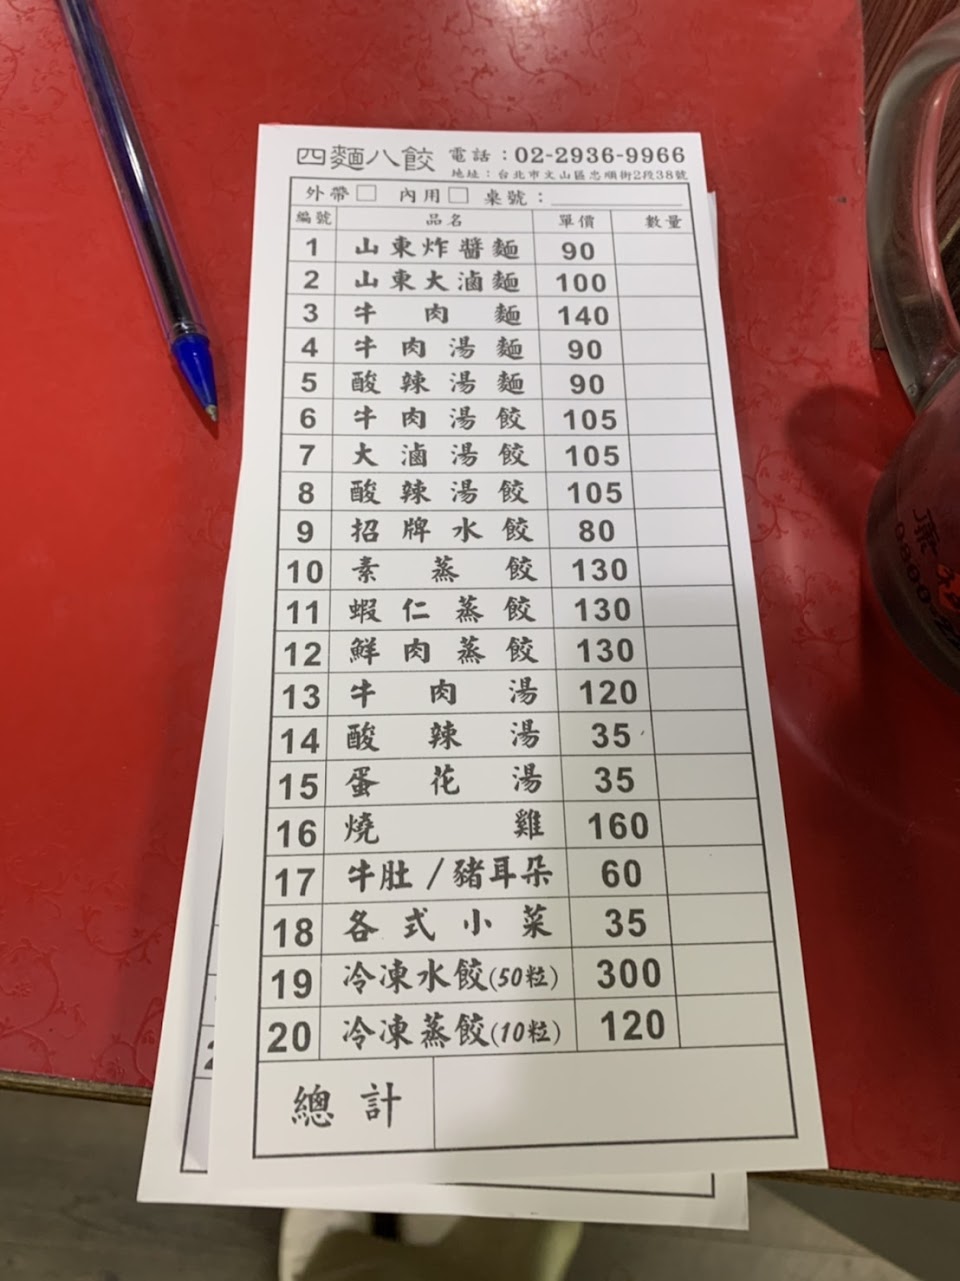 四麵八餃 電話：02-2936-9966
地址：台北市文山區忠順街2段38號
外帶□ 內用□ 桌號：
編號 品名 單價 數量
1 山東炸醬麵 90
2 山東大滷麵 100
3 牛肉麵 140
4 牛肉湯麵 90
5 酸辣湯麵 90
6 牛肉湯餃 105
7 大滷湯餃 105
8 酸辣湯餃 105
9 招牌水餃 80
10 素蒸餃 130
11 蝦仁蒸餃 130
12 鮮肉蒸餃 130
13 牛肉湯 120
14 酸辣湯 35
15 蛋花湯 35
16 燒雞 160
17 牛肚/豬耳朵 60
18 各式小菜 35
19 冷凍水餃(50粒) 300
20 冷凍蒸餃(10粒) 120
總計